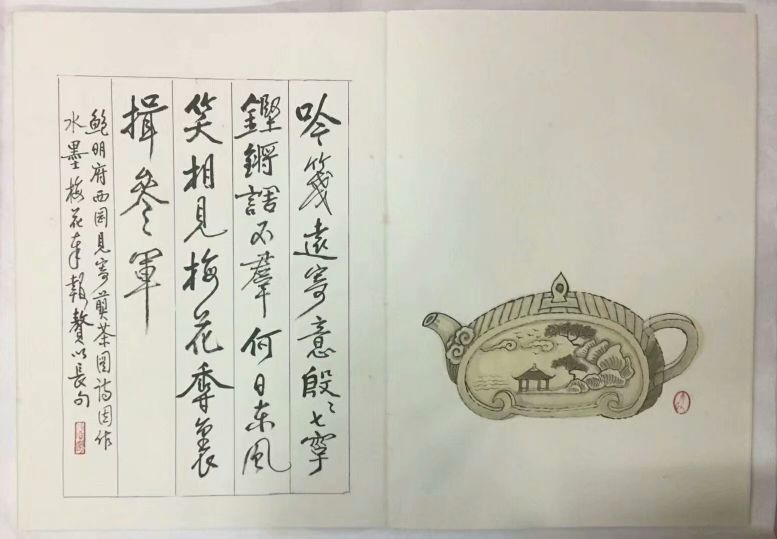 吟箋遠寄意殷〻七字
鏗鏘語不羣何日东風
笑相見梅花香裏
揖參軍
鮑明府西园見寄煎茶图詩因作
水墨梅花奉報贅以長句